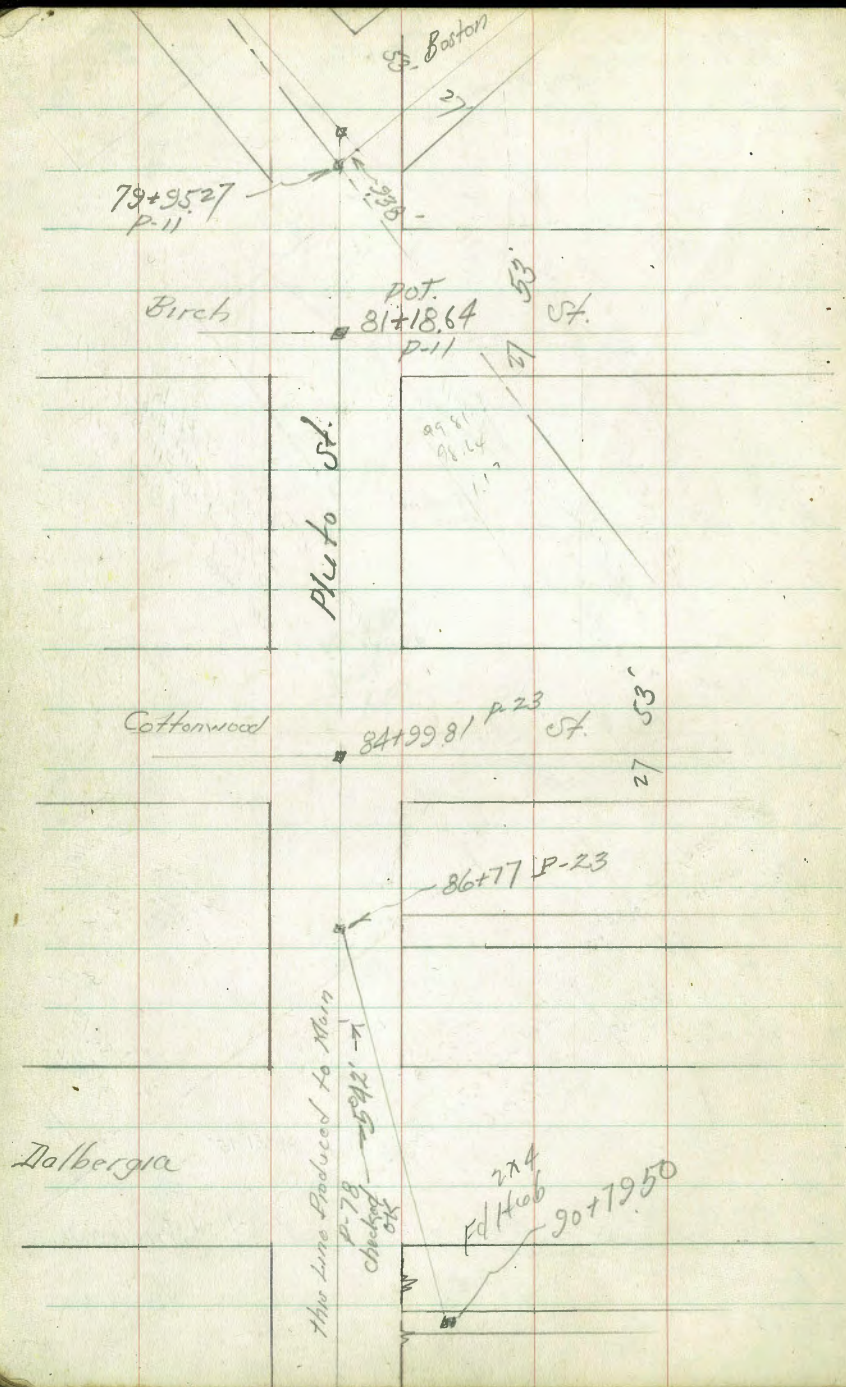 53' Boston
27
79+95.27
P-11
9.38
Birch
POT.
81+18.64
P-11
St.
27 53'
Pluto St.
99.81
98.64
1.17
Cottonwood
84+99.81 P-23
St.
27 53'
86+77 P-23
this Line Produced to Main
P-78
checked
OK
5°42'
Dalbergia
2x4
Fd Hub
90+79.50